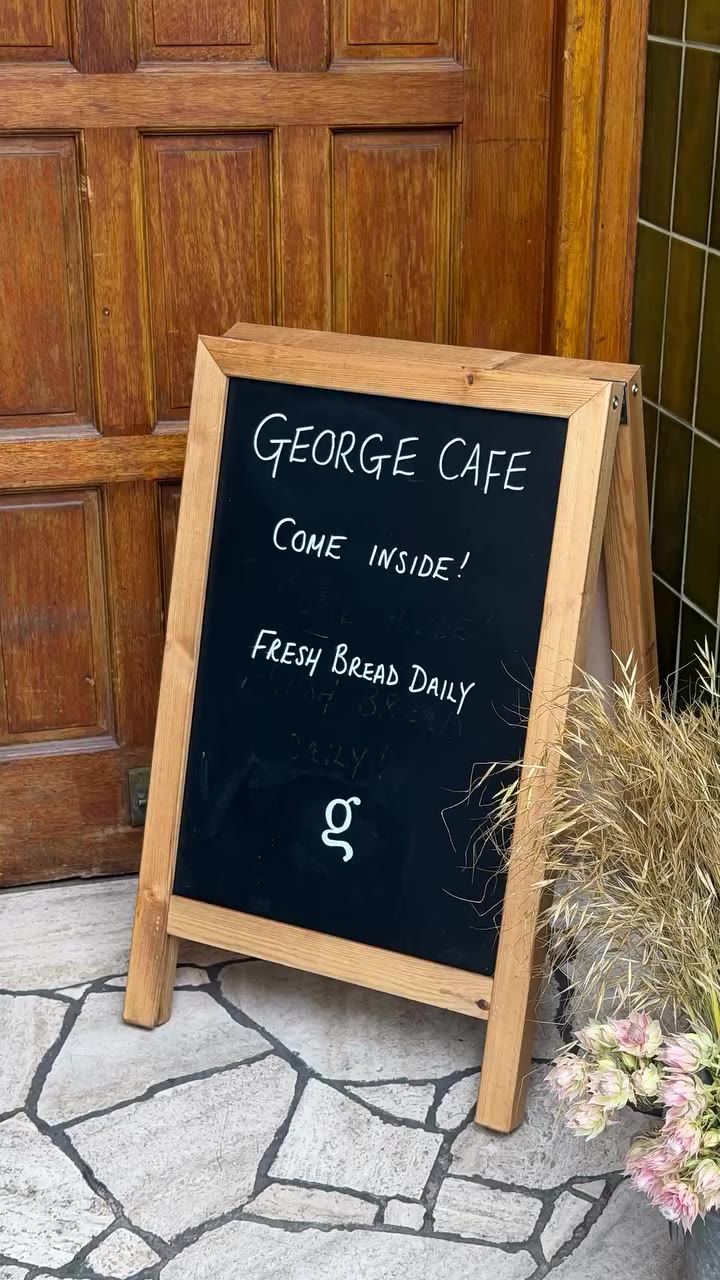 GEORGE CAFE
COME INSIDE!
FRESH BREAD DAILY
g